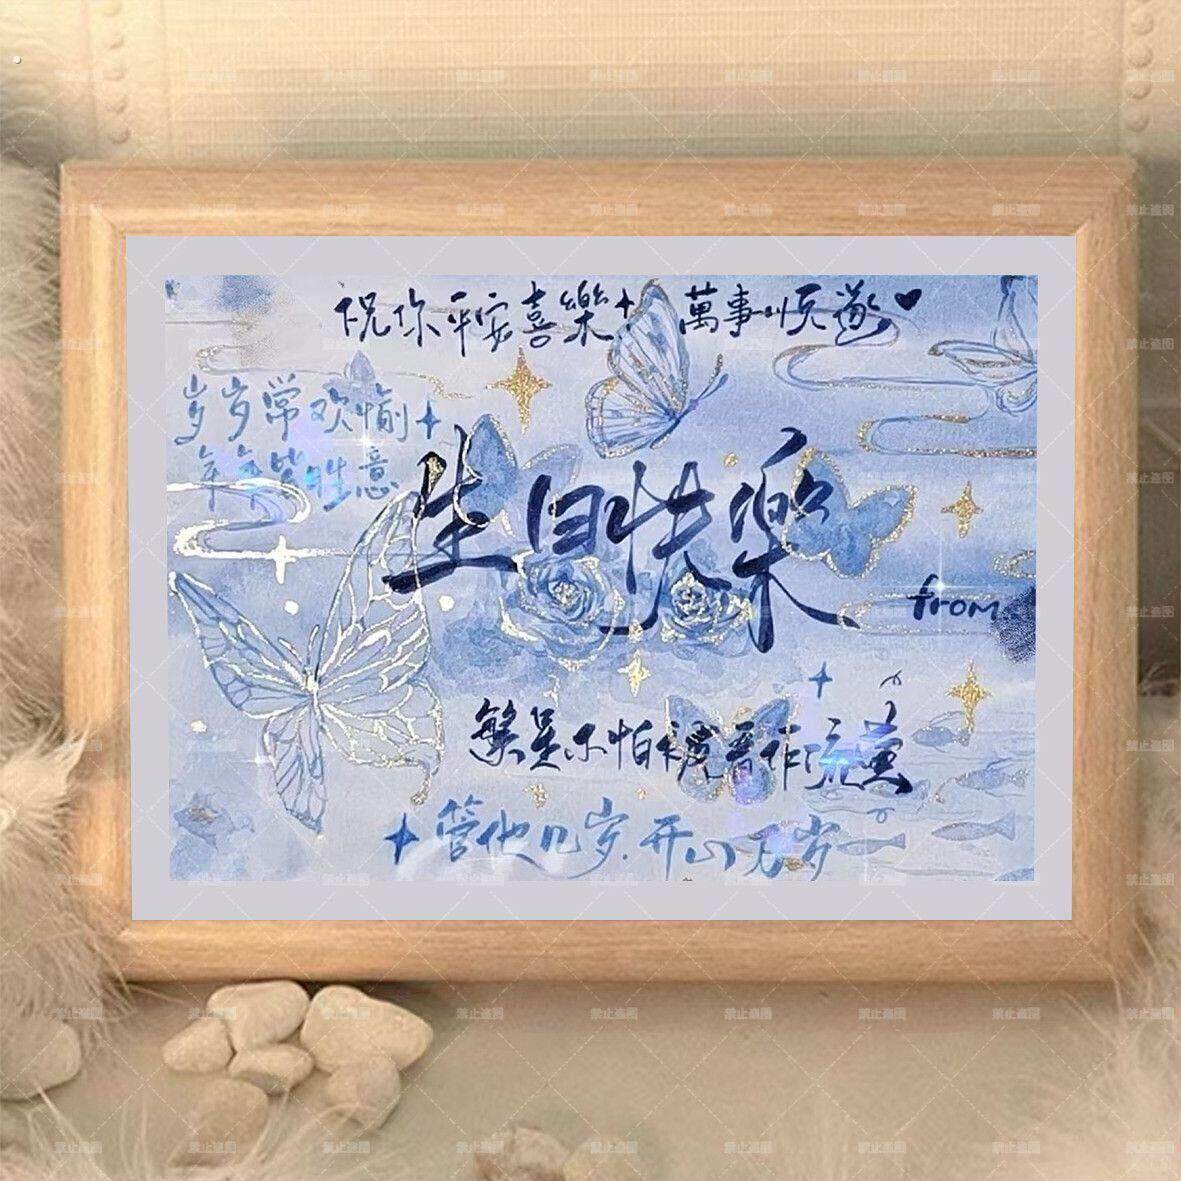 祝你平安喜樂 萬事順遂
岁岁常欢愉
年年皆胜意
生日快樂
from..
繁星不怕被看作流萤
管他几岁,开心万岁
禁止盗图